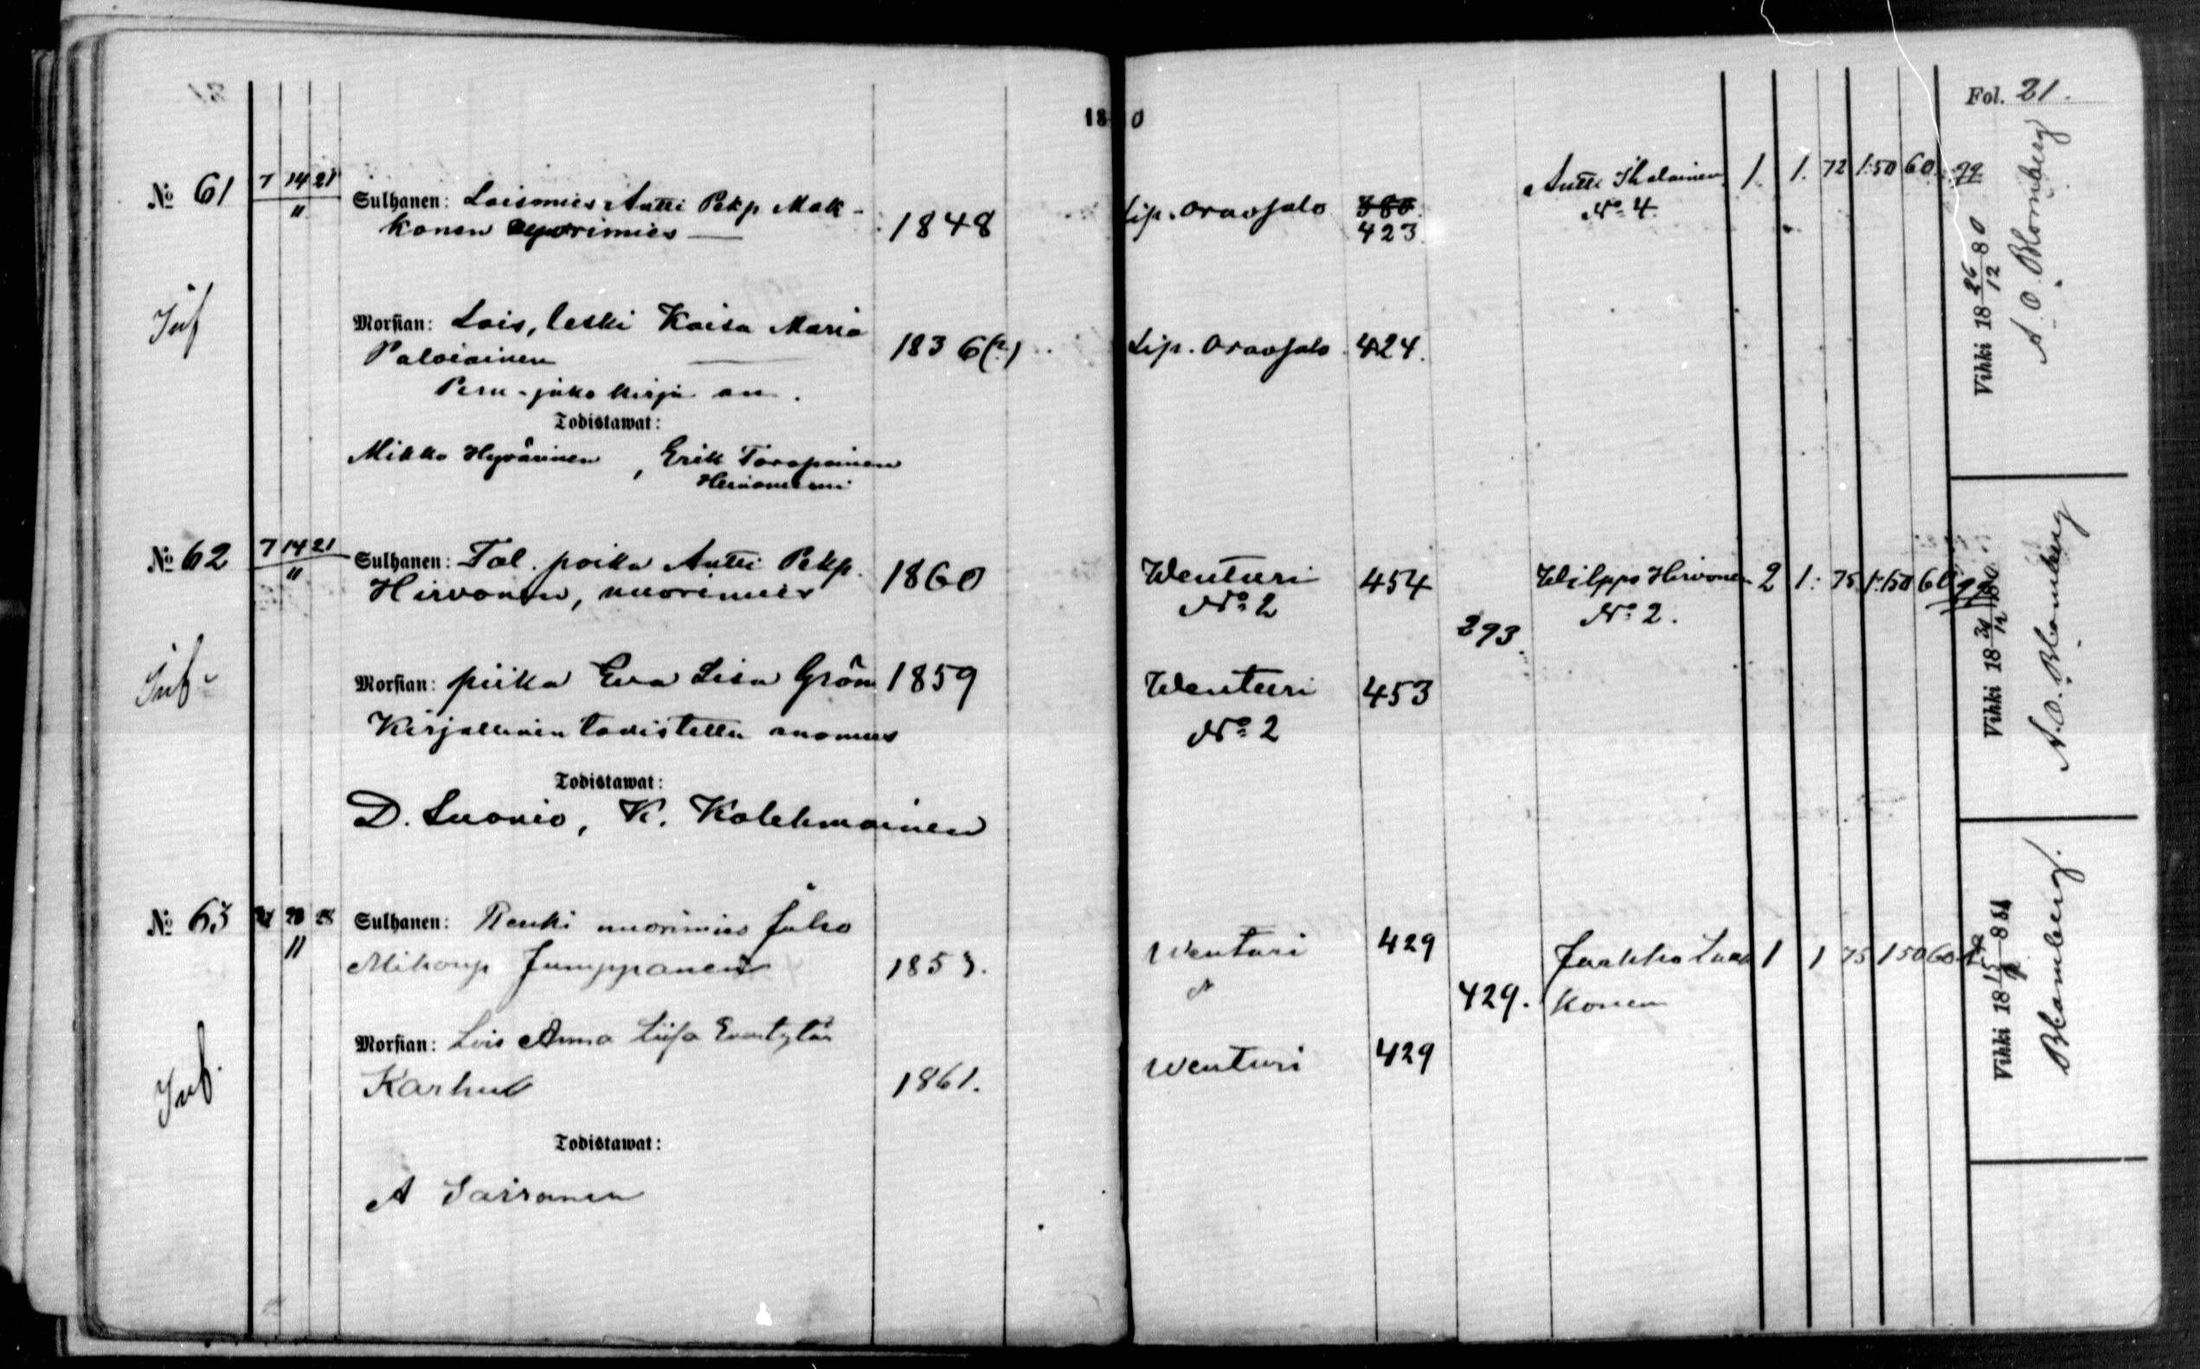 18 0
Fol. 21.
№ 61 7 14 21
11
Sulhanen: Loismies Antti Pekp. Mak-
konen nuorimies 1848
Lip. Oravisalo 380. 423.
Antti Ihalainen 1. 1. 72 1:50 60.
№ 4.
Inf
Morsian: Lois, leski Kaisa Maria
Paloiainen 1836(?)
Lip. Oravisalo 424.
Peru-jako kirja on.
Todistawat:
Mikko Hyvärinen, Erik Toropainen
Heinoniemi
Vihki 18 26/12 80
A. O. Blomberg
№ 62 7 14 21
11
Sulhanen: Tal. poika Antti Pekp.
Hirvonen, nuorimies 1860
Wenturi 454
№ 2
293.
Wilppo Hirvonen 2 1: 75 1:50 60
№ 2.
Inf.
Morsian: piika Eva Lisa Grön 1859
Wenturi 453
№ 2
Kirjallinen todistettu anomus
Todistawat:
D. Suonio, K. Kolehmainen
Vihki 18
A. O. Blomberg
№ 63 28
11
Sulhanen: Renki nuorimies Juho
Mikonp Jumppanen 1853.
Wenturi 429
429.
Jaakko Laak 1 1 75 1 50 60
konen
Inf.
Morsian: Lois Anna Liisa Eventytär
Karhu 1861.
Wenturi 429
Todistawat:
A Sairanen
Vihki 18 15 8
Blomberg.